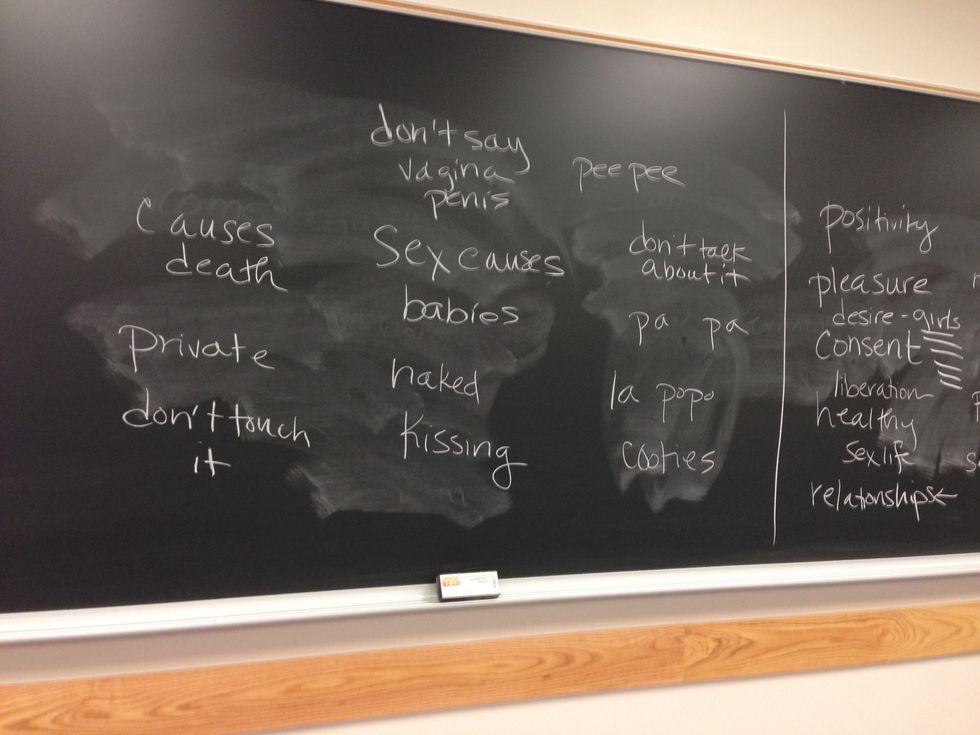 Causes
death
Private
don't touch
it
don't say
vagina
penis
Sex causes
babies
naked
Kissing
peepee
don't talk
about it
pa pa
la popo
cooties
positivity
pleasure
desire - girls
Consent
liberation
healthy
sex life
relationships